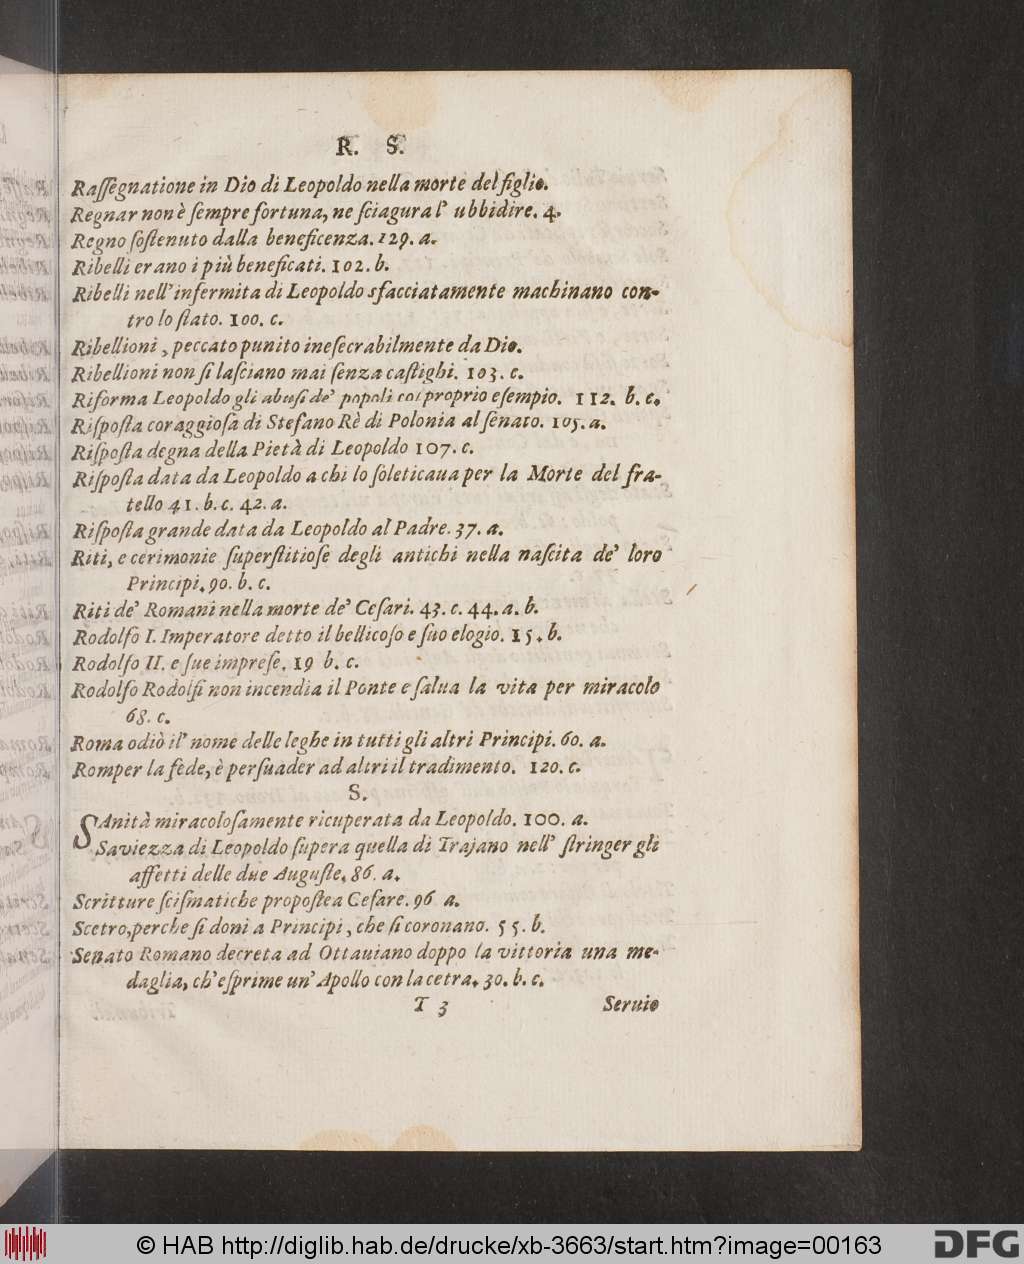 R. S.
Raſſegnatione in Dio di Leopoldo nella morte del figlio.
Regnar non è ſempre fortuna, ne ſciagura l' ubbidire. 4.
Regno ſoſtenuto dalla beneficenza. 129. a.
Ribelli erano i più beneficati. 102. b.
Ribelli nell'infermita di Leopoldo sfacciatamente machinano con-
tro lo ſtato. 100. c.
Ribellioni, peccato punito ineſecrabilmente da Dio.
Ribellioni non ſi laſciano mai ſenza caſtighi. 103. c.
Riforma Leopoldo gli abuſi de' popoli col proprio eſempio. 112. b. c.
Riſpoſta coraggioſa di Stefano Rè di Polonia al ſenato. 105. a.
Riſpoſta degna della Pietà di Leopoldo 107. c.
Riſpoſta data da Leopoldo a chi lo ſoleticaua per la Morte del fra-
tello 41. b. c. 42. a.
Riſpoſta grande data da Leopoldo al Padre. 37. a.
Riti, e cerimonie ſuperſtitioſe degli antichi nella naſcita de' loro
Principi. 90. b. c.
Riti de' Romani nella morte de' Ceſari. 43. c. 44. a. b.
Rodolfo I. Imperatore detto il bellicoſo e ſuo elogio. 15. b.
Rodolfo II. e ſue impreſe. 19 b. c.
Rodolfo Rodolfi non incendia il Ponte e ſalua la vita per miracolo
68. c.
Roma odiò il' nome delle leghe in tutti gli altri Principi. 60. a.
Romper la fede, è perſuader ad altri il tradimento. 120. c.
S.
SAnità miracoloſamente ricuperata da Leopoldo. 100. a.
Saviezza di Leopoldo ſupera quella di Trajano nell' ſtringer gli
affetti delle due Auguſte. 86. a.
Scritture ſciſmatiche propoſte a Ceſare. 96 a.
Scetro, perche ſi doni a Principi, che ſi coronano. 55. b.
Senato Romano decreta ad Ottauiano doppo la vittoria una me-
daglia, ch'eſprime un' Apollo con la cetra. 30. b. c.
T 3 Seruio
© HAB http://diglib.hab.de/drucke/xb-3663/start.htm?image=00163
DFG